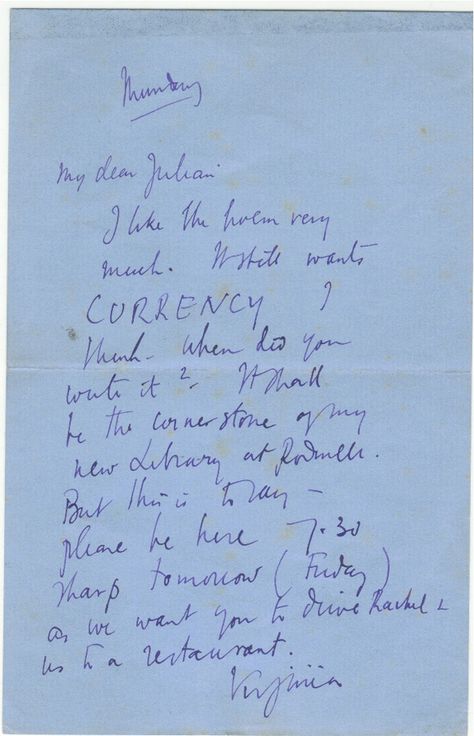 Thursday
My dear Julian
I like the poem very
much. It still wants
CURRENCY I
think - when did you
write it? It shall
be the corner stone of my
new Library at Rodmell.
But this is to say -
please be here 7.30
sharp tomorrow (Friday)
as we want you to drive Rachel &
us to a restaurant.
Virginia